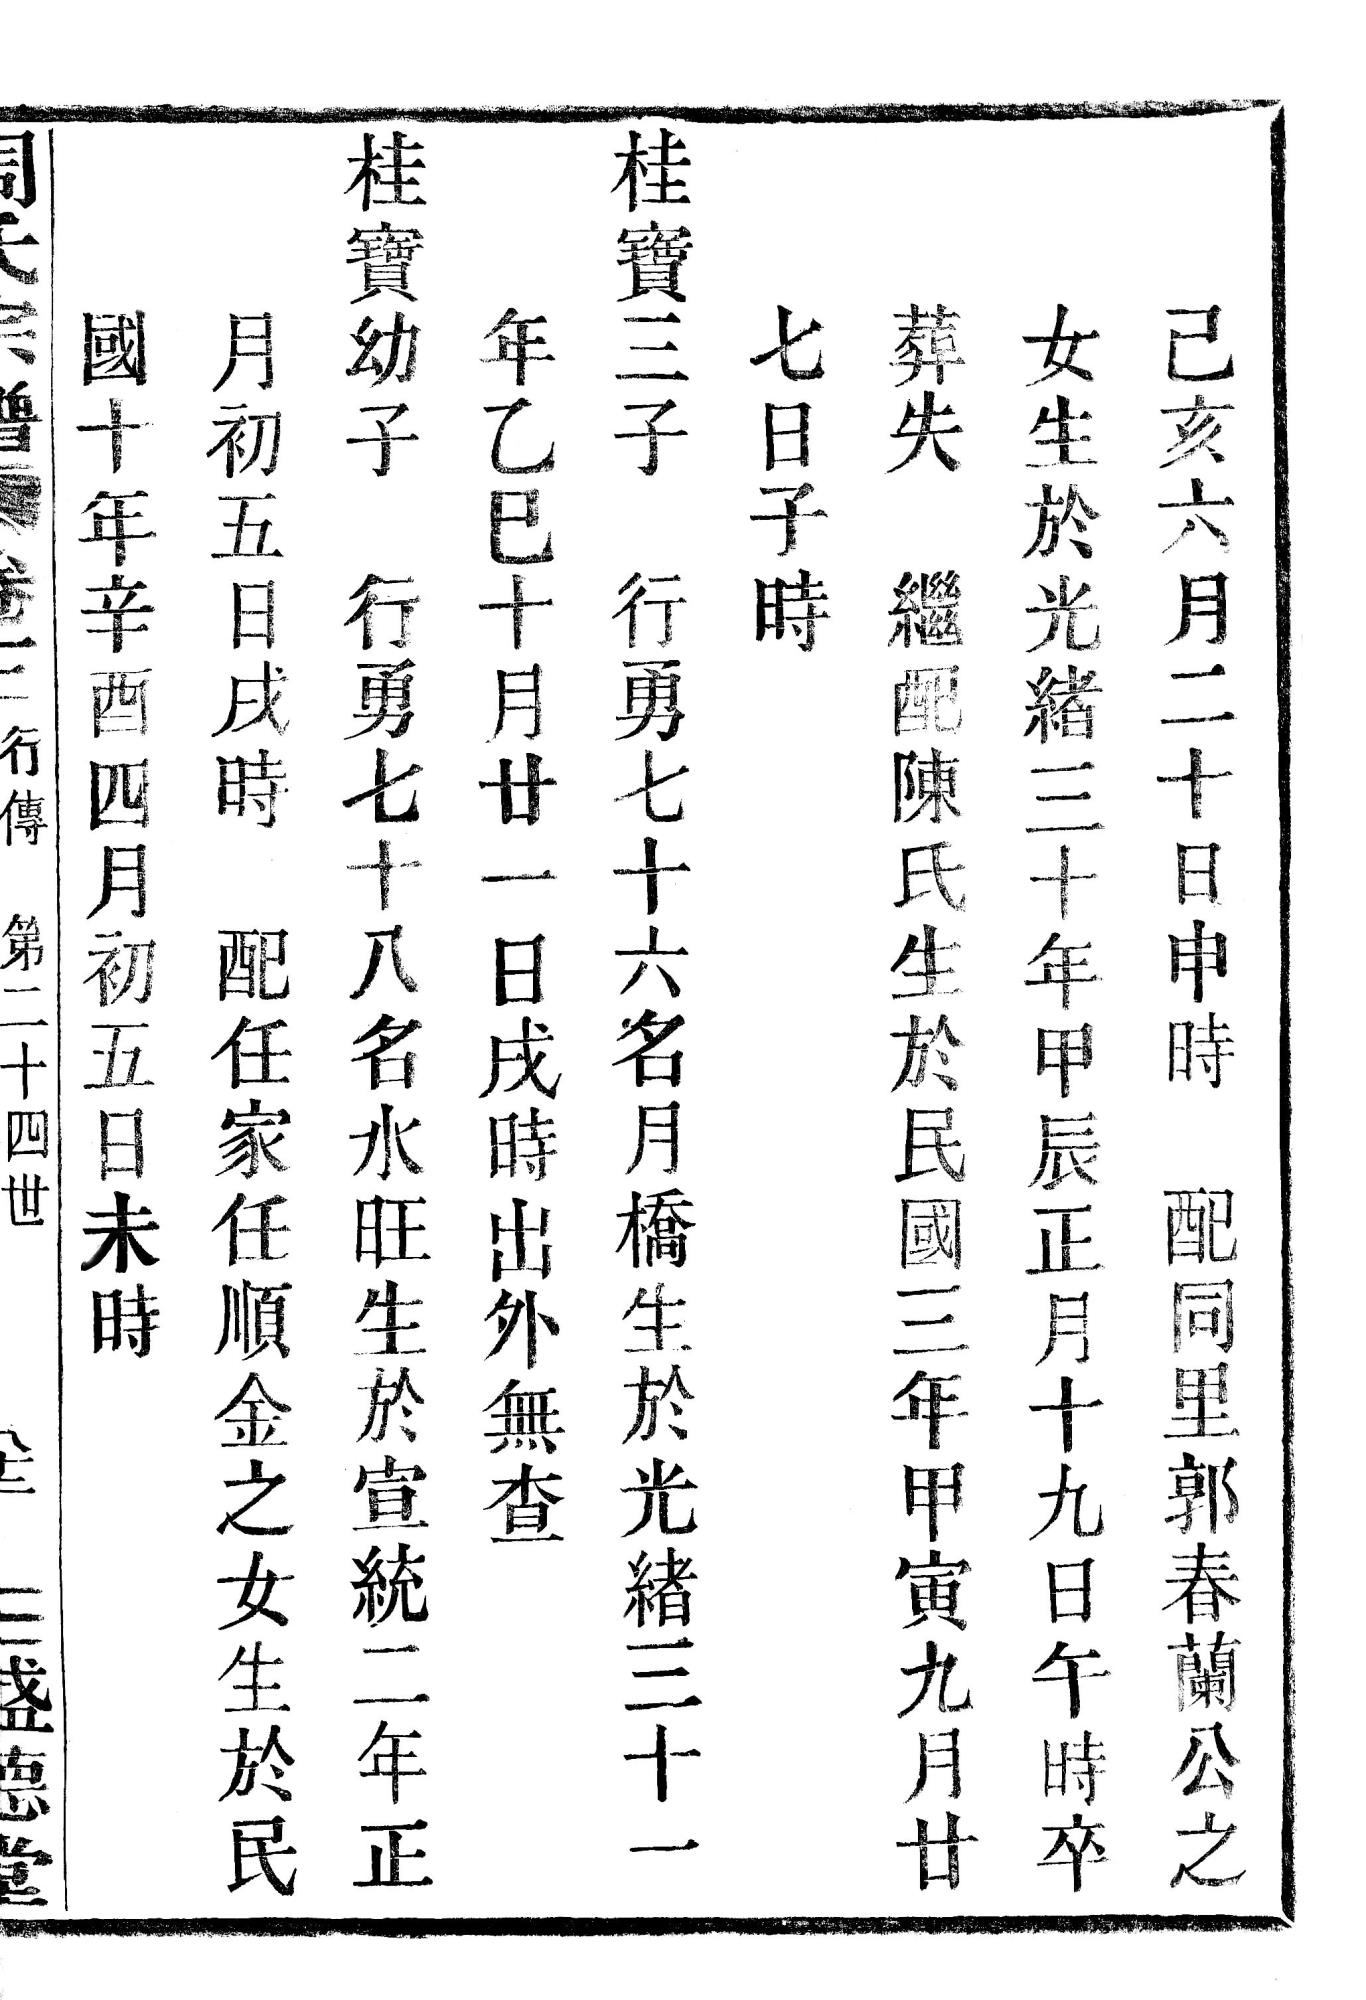 己亥六月二十日申時　配同里郭春蘭公之
女生於光緒三十年甲辰正月十九日午時卒
葬失　繼配陳氏生於民國三年甲寅九月廿
七日子時
桂寶三子　行勇七十六名月橋生於光緒三十一
年乙巳十月廿一日戌時出外無查
桂寶幼子　行勇七十八名水旺生於宣統二年正
月初五日戌時　配任家任順金之女生於民
國十年辛酉四月初五日未時
周氏宗譜　卷十二行傳　第二十四世　三盛德堂